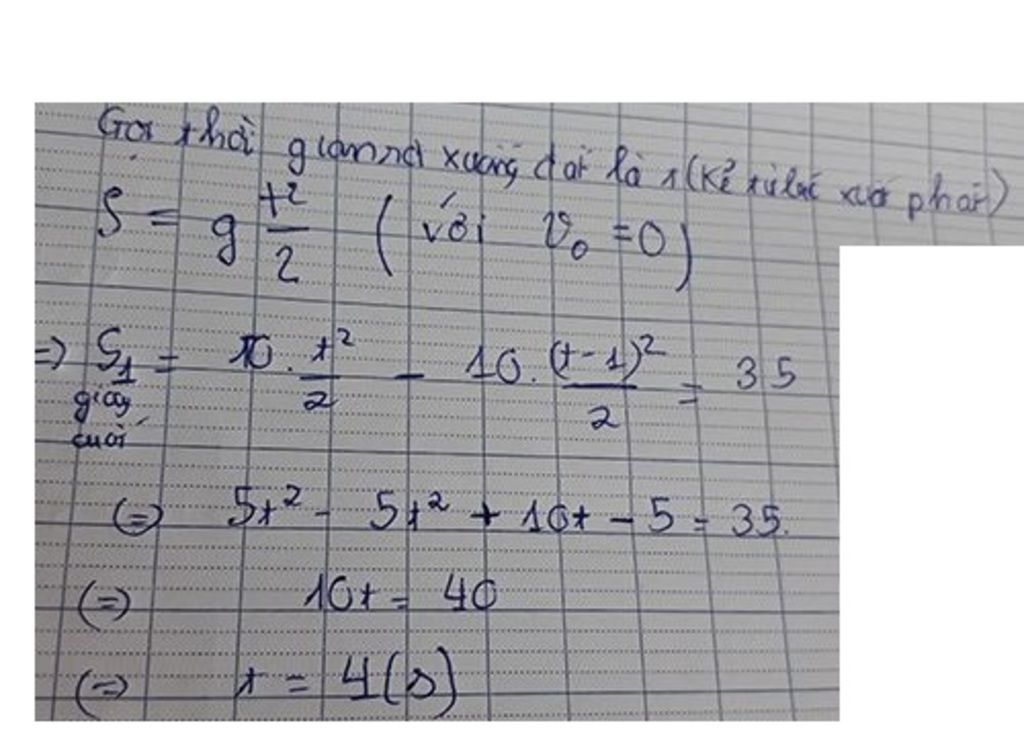 Gọi thời gian rơi xuống đất là t (kể từ lúc xuất phát)
S = g t²/2 ( với v₀ = 0 )
=> S₁ giây cuối = 10 . t²/2 - 10 . (t - 1)²/2 = 35
(=) 5t² - 5t² + 10t - 5 = 35.
(=) 10t = 40
(=) t = 4 (s)